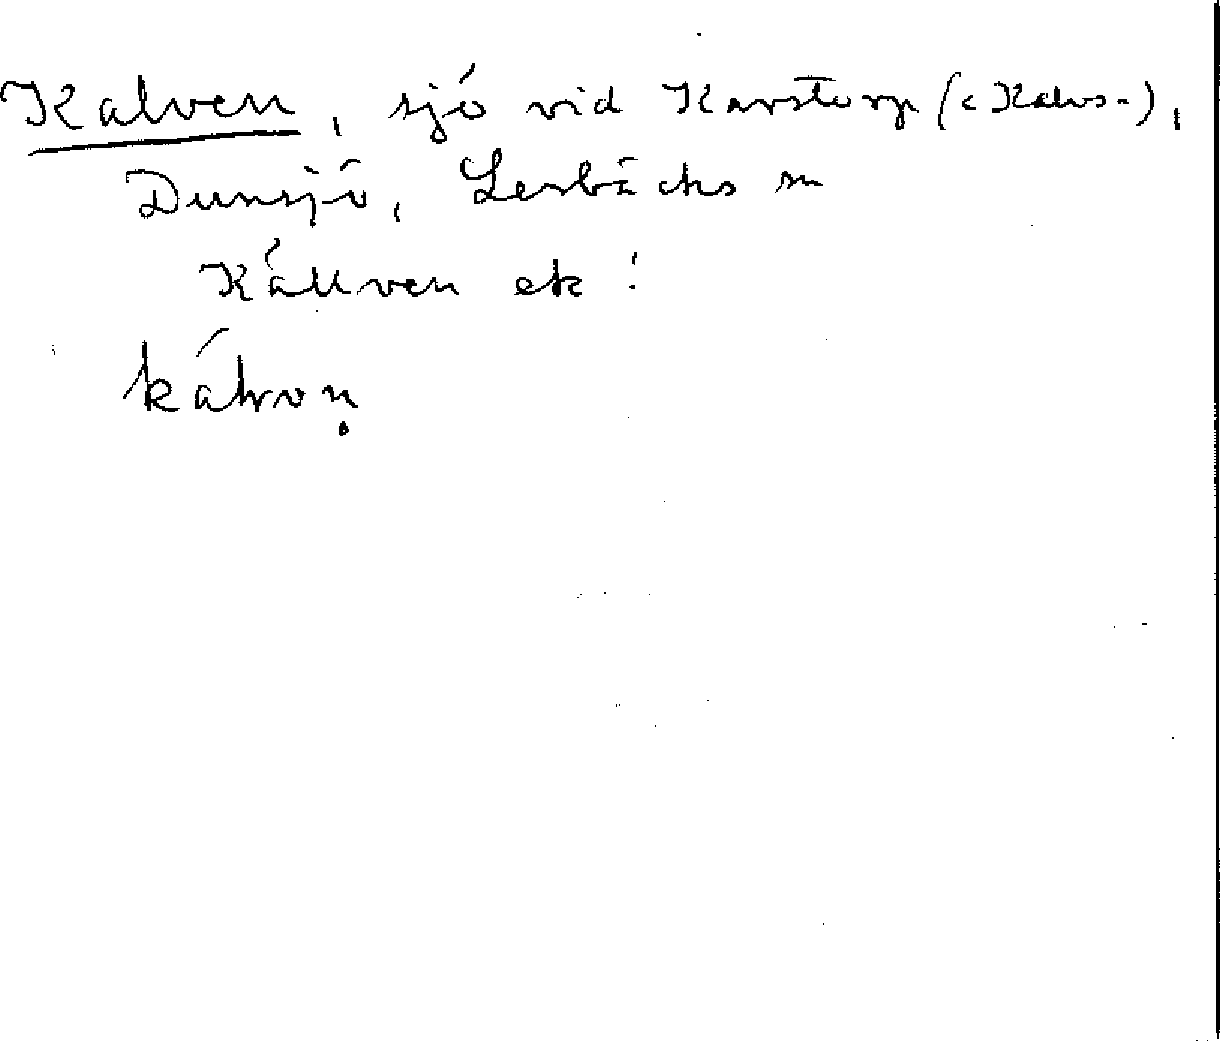 Kalven, sjö vid Karstorp (< Kalvs-),
Dunsjö, Lerbäcks sn
Källven ek!
kálvon̥